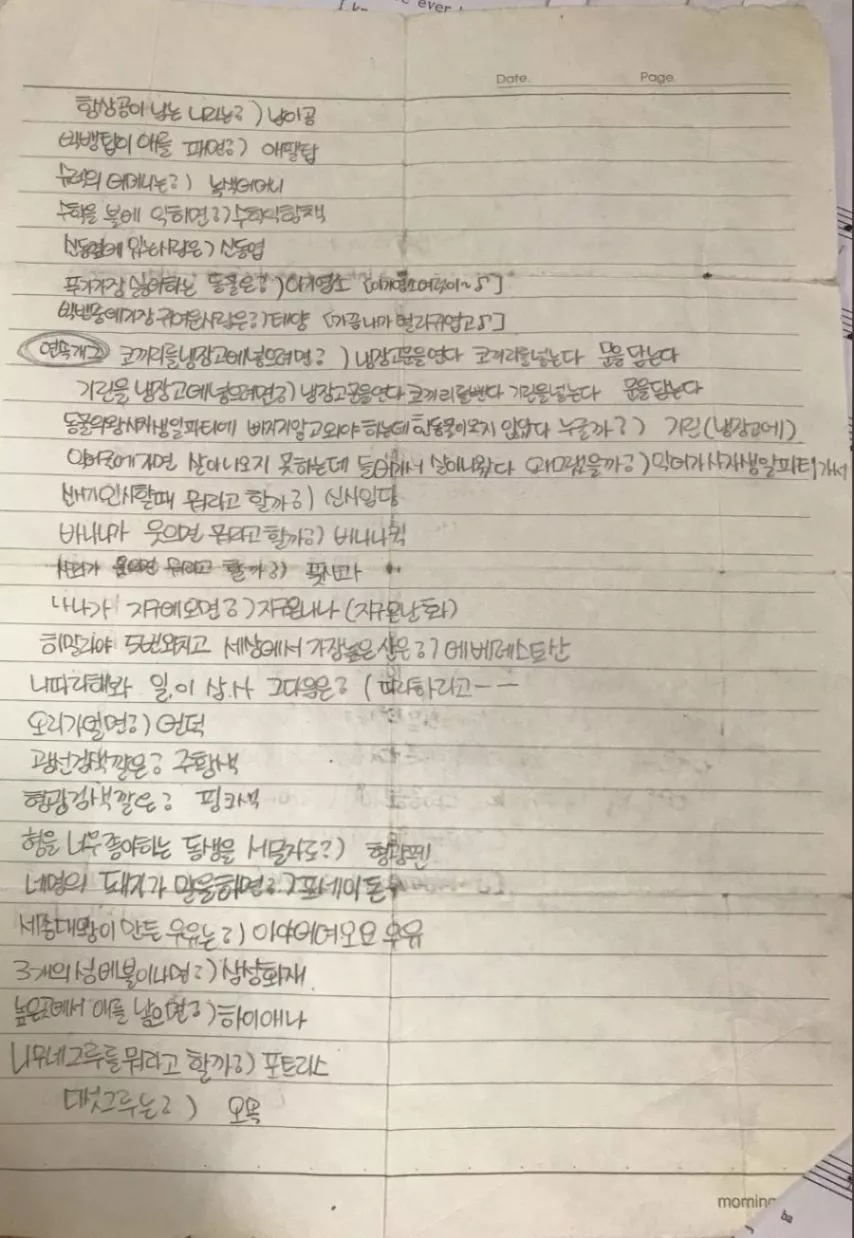 ever
Date. Page.
항상공이 남는 나라는?) 남이공
빅뱅탑이 애를 패면?) 애팔탑
어머니는?) 녹색어머니
수학을 불에 익히면?) 수학익힘책
신동옆에 있는사람은?) 신동엽
푸가가장 싫어하는 동물은?) 아기염소 [아기염소여럿이~♪]
빅뱅중에가장귀여운사람은?) 태양 [가끔나가 멀라귀엽고♪]
연속개그 코끼리를냉장고에넣으려면?) 냉장고문을연다 코끼리를넣는다 문을닫는다
기린을 냉장고에넣으려면?) 냉장고문을연다 코끼리를뺀다 기린을넣는다 문을닫는다
동물의왕사자생일파티에 빠지지않고와야 하는데 한동물이오지 않았다 누굴까?) 기린(냉장고에)
가면 살아나오지 못하는데 살아나왔다 왜그랬을까?) 악어가사자생일파티가서
배가인사할때 뭐라고 할까?) 신사임당
바나나가 웃으면 뭐라고할까?) 바나나킥
사과가 웃으면 뭐라고 할까?) 풋사과
나나가 지구에오면?) 지구온나나 (지구온난화)
히말라야 5번외치고 세상에서 가장높은산은?) 에베레스트산
나따라해봐 일.이 삼.사 그다음은? (따라하라고ㅡㅡ
오리가얼면?) 언덕
광선검색깔은? 주황색
형광검색깔은? 핑크색
형을 너무좋아하는 동생을 세글자로?) 형광펜
네명의 돼지가 말을하면?) 포세이돈
세종대왕이 만든 우유는?) 아야어여오요 우유
3개의성에불이나면?) 삼성화재
높은곳에서 애를 낳으면?) 하이애나
나무네그루를뭐라고 할까?) 포트리스
다섯그루는?) 오목
morning
ba